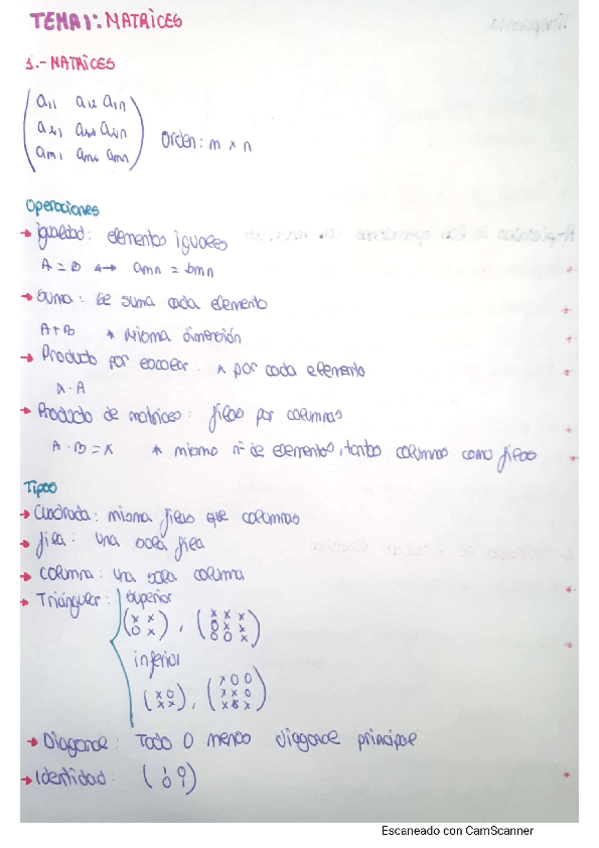 TEMA 1: MATRICES
1.- MATRICES
a11 a12 a1n
a21 a22 a2n
am1 am2 amn
Orden: m x n
Operaciones
→ igualdad: elementos iguales
A = B ↔ amn = bmn
→ Suma: Se suma cada elemento
A+B * Misma dimensión
→ Producto por escalar: x por cada elemento
α · A
→ Producto de matrices: filas por columnas
A · B = X * mismo nº de elementos, tantas columnas como filas
Tipos
→ Cuadrada: misma filas que columnas
→ fila: una sola fila
→ columna: una sola columna
→ Triángular: superior
(x x
0 x), (x x x
0 x x
0 0 x)
inferior
(x 0
x x), (x 0 0
x x 0
x x x)
→ Diagonal: Todo 0 menos diagonal principal
→ Identidad: (1 0
0 1)
Escaneado con CamScanner